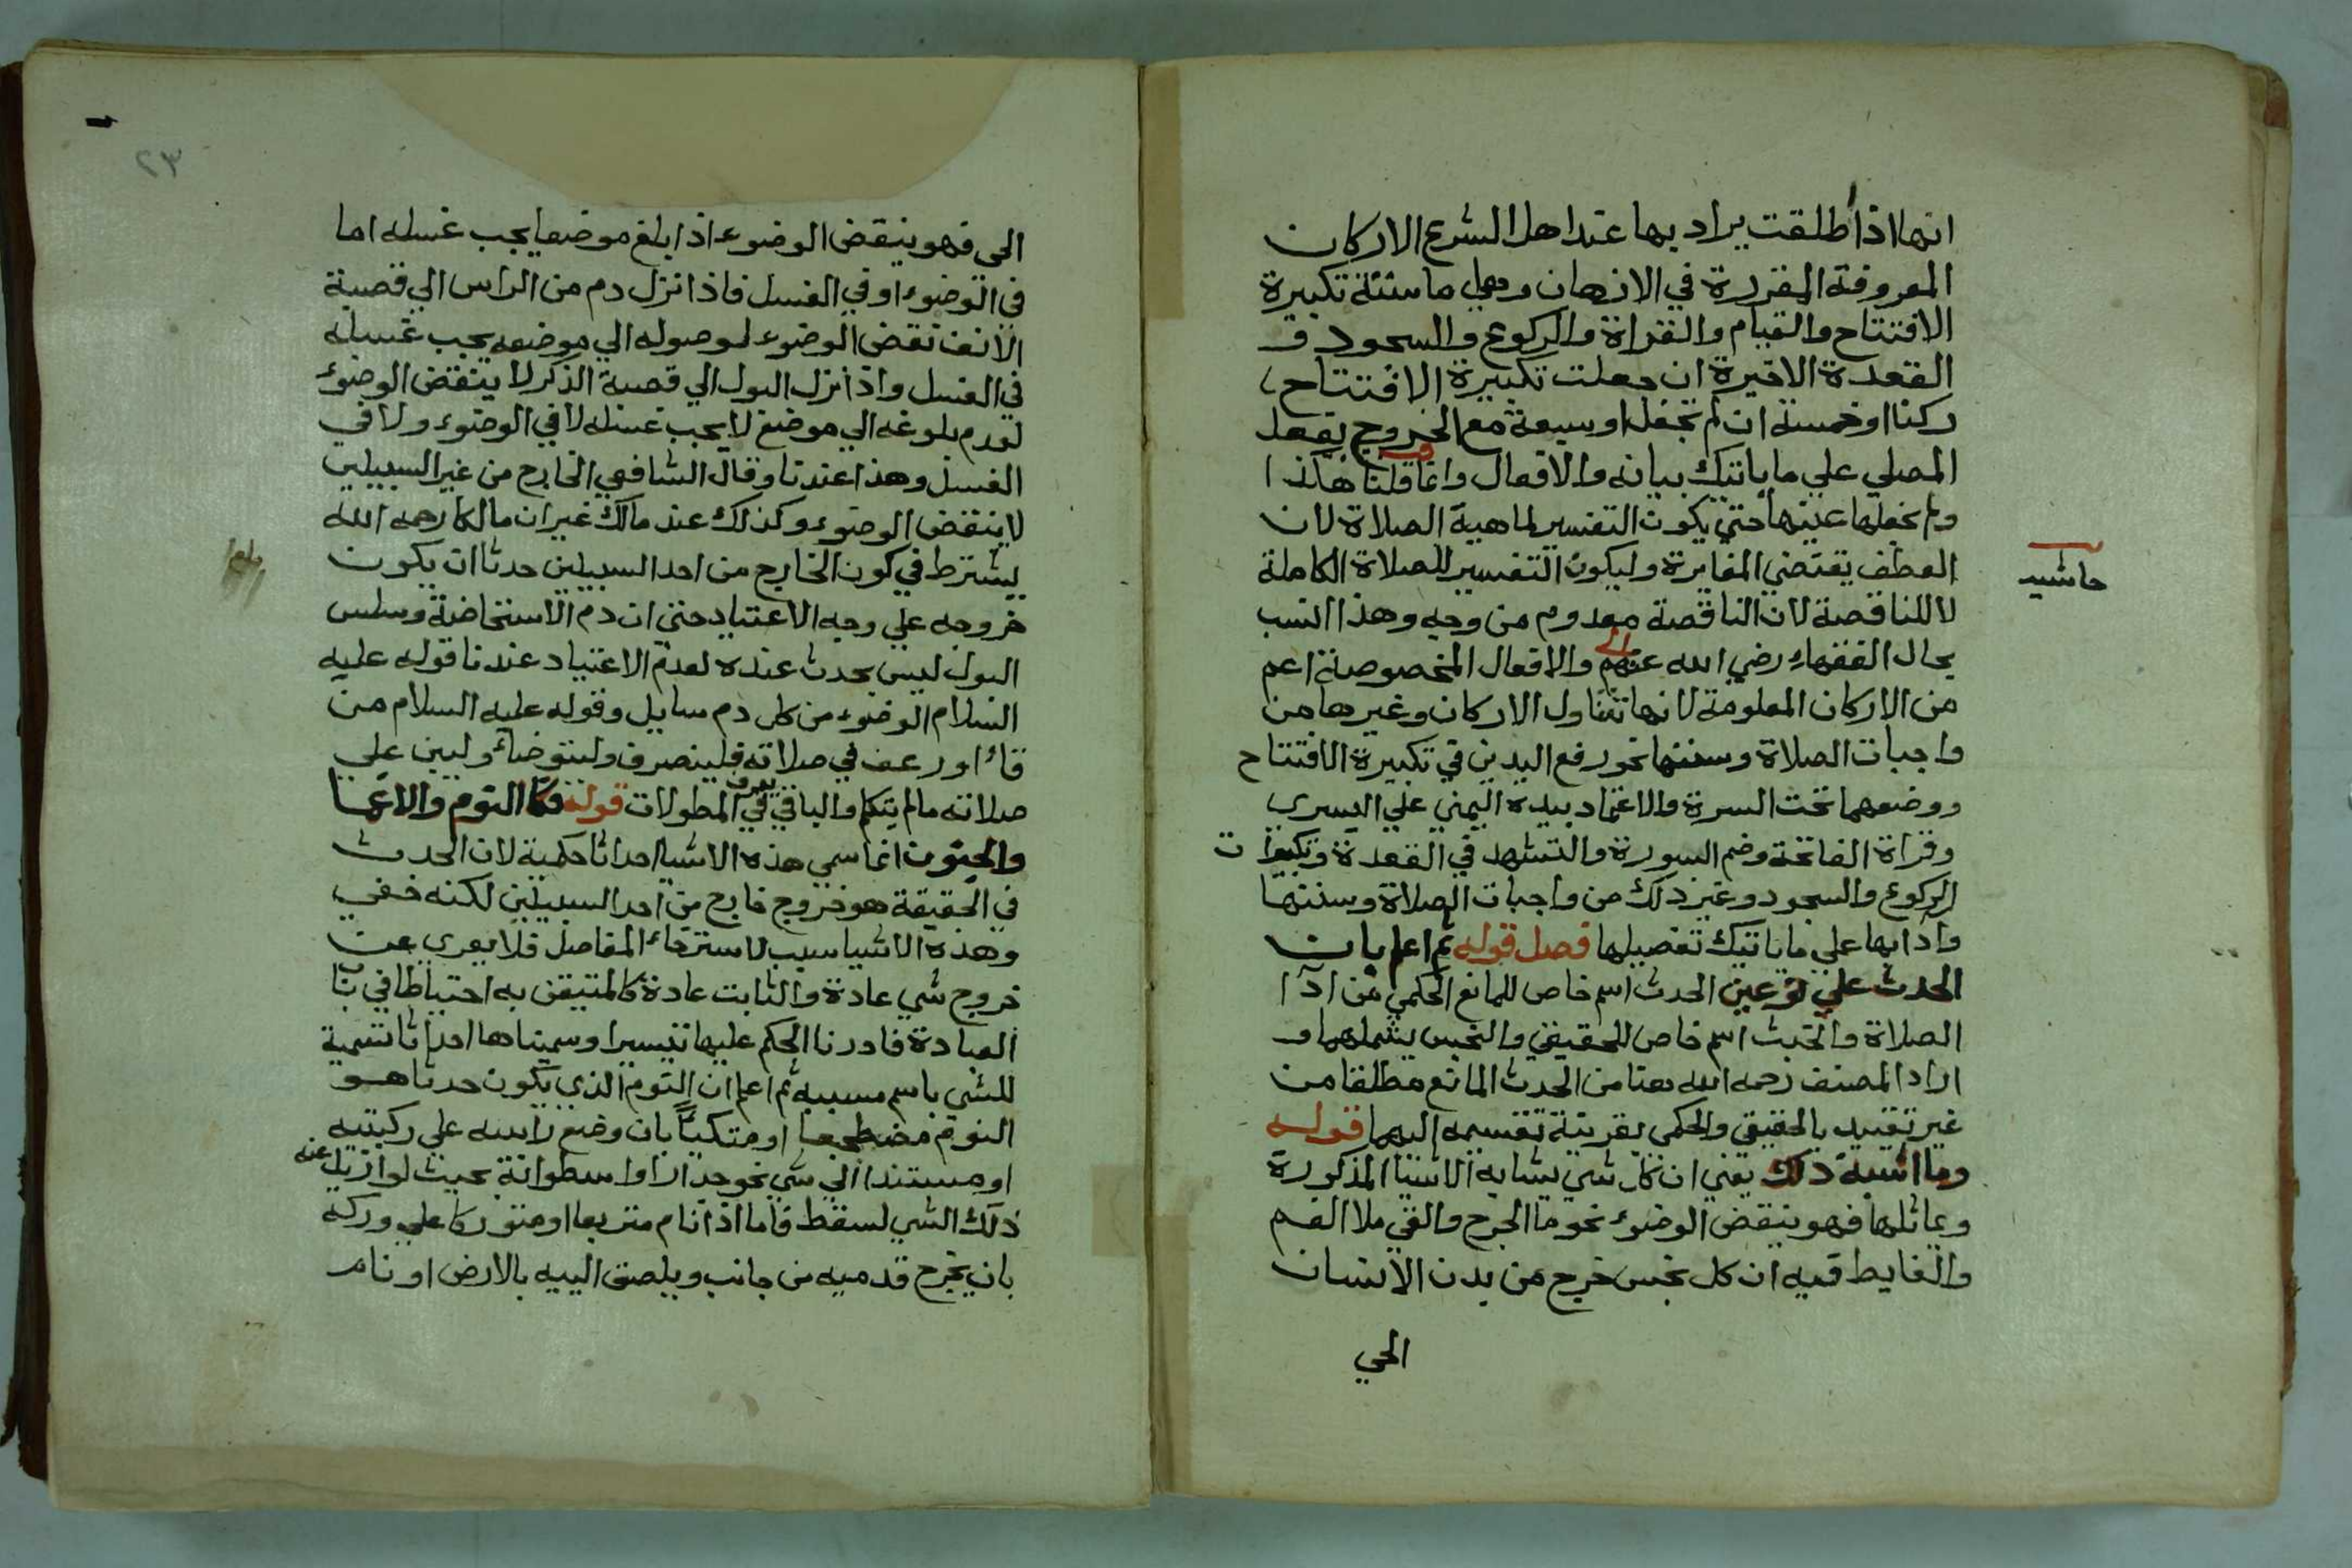 انها اذا أطلقت يراد بها عند اهل الشرع الاركان
المعروفة المقررة في الاذهان وهي ماستة تكبيرة
الافتتاح والقيام والقراة والركوع والسجود و
القعدة الاخيرة ان جعلت تكبيرة الافتتاح
ركنا او خمسة ان لم تجعل او سبعة مع الخروج بفعل
المصلي علي ما ياتيك بيانه والافعال وانما قلنا هكذا
ولم نجعلها عينها حتي يكون التفسير لماهية الصلاة لان
العطف يقتضي المغايرة وليكون التفسير للصلاة الكاملة
حاشيه
لا للناقصة لان الناقصة معدوم من وجه وهذا انسب
بحال الفقهاء رضي الله عنهم والافعال المخصوصة اعم
من الاركان المعلومة لانها تتناول الاركان وغيرها من
واجبات الصلاة وسننها نحو رفع اليدين في تكبيرة الافتتاح
ووضعهما تحت السرة والاعتماد بيده اليمني علي اليسري
وقراة الفاتحة وضم السورة والتشهد في القعدة وتكبيرات
الركوع والسجود وغير ذلك من واجبات الصلاة وسننها
وادابها علي ما ياتيك تفصيلها فصل قوله ثم اعلم بان
الحدث علي نوعين الحدث اسم خاص للمانع الحكمي من ادآ
الصلاة والخبث اسم خاص للحقيقي والنجس يشملهما و
اراد المصنف رحمه الله هنا من الحدث المانع مطلقا من
غير تقييد بالحقيقي والحكمي بقرينة تقسيمه اليهما قوله
وما اشبه ذلك يعني ان كل شي يشابه الاشيا المذكورة
ويماثلها فهو ينقض الوضوء نحو ما الجرح والقي ملا الفم
والغايط قيه ان كل نجس خرج من بدن الانسان
الحي
٢٣
الحي فهو ينقض الوضوء اذا بلغ موضعا يجب غسله اما
في الوضوء او في الغسل فاذا نزل دم من الراس الي قصبة
الانف نقض الوضوء لوصوله الي موضع يجب غسله
في الغسل واذا نزل البول الي قصبة الذكر لا ينقض الوضوء
لعدم بلوغه الي موضع لا يجب غسله لا في الوضوء ولا في
الغسل وهذا عندنا وقال الشافعي الخارج من غير السبيلين
لا ينقض الوضوء وكذلك عند مالك غير ان مالكا رحمه الله
يشترط في كون الخارج من احد السبيلين حدثا ان يكون
خروجه علي وجه الاعتياد حتي ان دم الاستحاضة وسلس
البول ليس بحدث عنده لعدم الاعتياد عندنا قوله عليه
السلام الوضوء من كل دم سايل وقوله عليه السلام من
قاء او رعف في صلاته فلينصرف وليتوضأ وليبن علي
صلاته مالم يتكلم والباقي يعرف في المطولات قوله وكذا النوم والاغما
والجنون انما سمي هذه الاشيا احداثا حكمية لان الحدث
في الحقيقة هو خروج خارج من احد السبيلين لكنه خفي
وهذه الاشيا سبب لاسترخاء المفاصل فلا يعري عن
خروج شي عادة والثابت عادة كالمتيقن به احتياطا في باب
العبادة فادرنا الحكم عليها تيسيرا وسميناها احداثا تسمية
للشي باسم مسببه ثم اعلم ان النوم الذي يكون حدثا هو
النوم مضطجعا او متكيا بان وضع راسه علي ركبتيه
او مستندا الي شي نحو جدار او اسطوانة بحيث لو ازيل عنه
ذلك الشي لسقط فاما اذا نام متربعا او متوركا علي وركه
بان يخرج قدميه من جانب ويلصق اليبه بالارض او نام